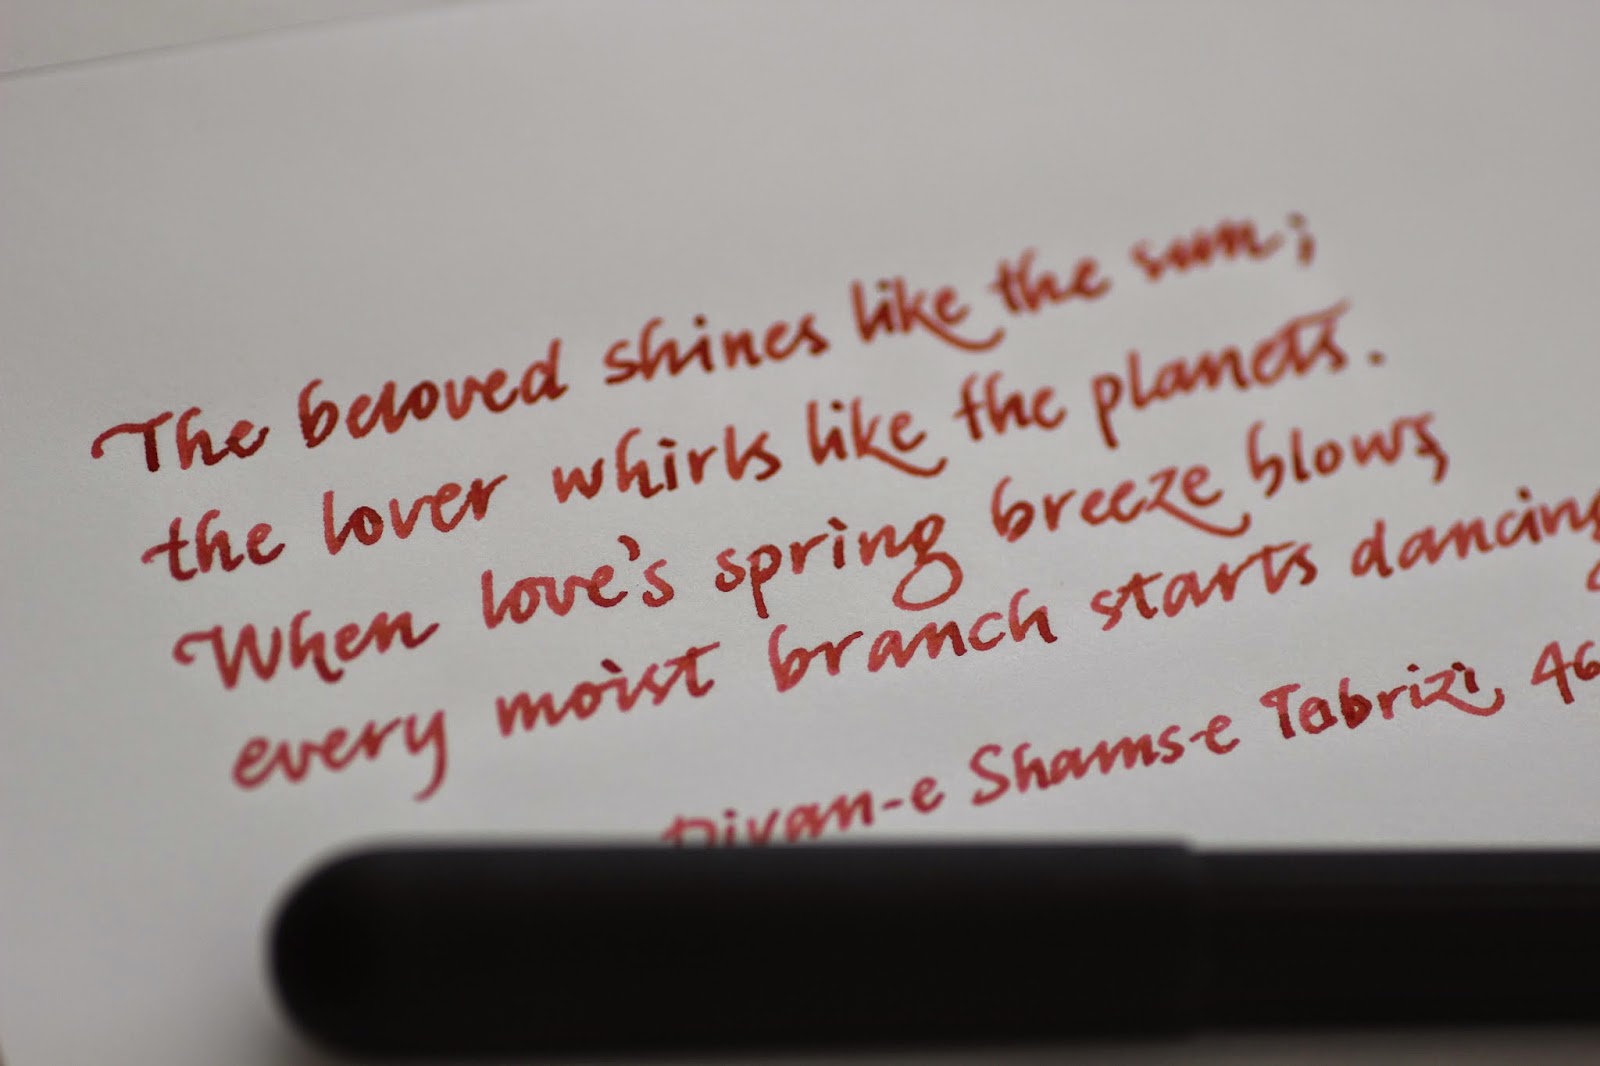 The beloved shines like the sun;
the lover whirls like the planets.
When love's spring breeze blows,
every moist branch starts dancing
Divan-e Shams-e Tabrizi, 46